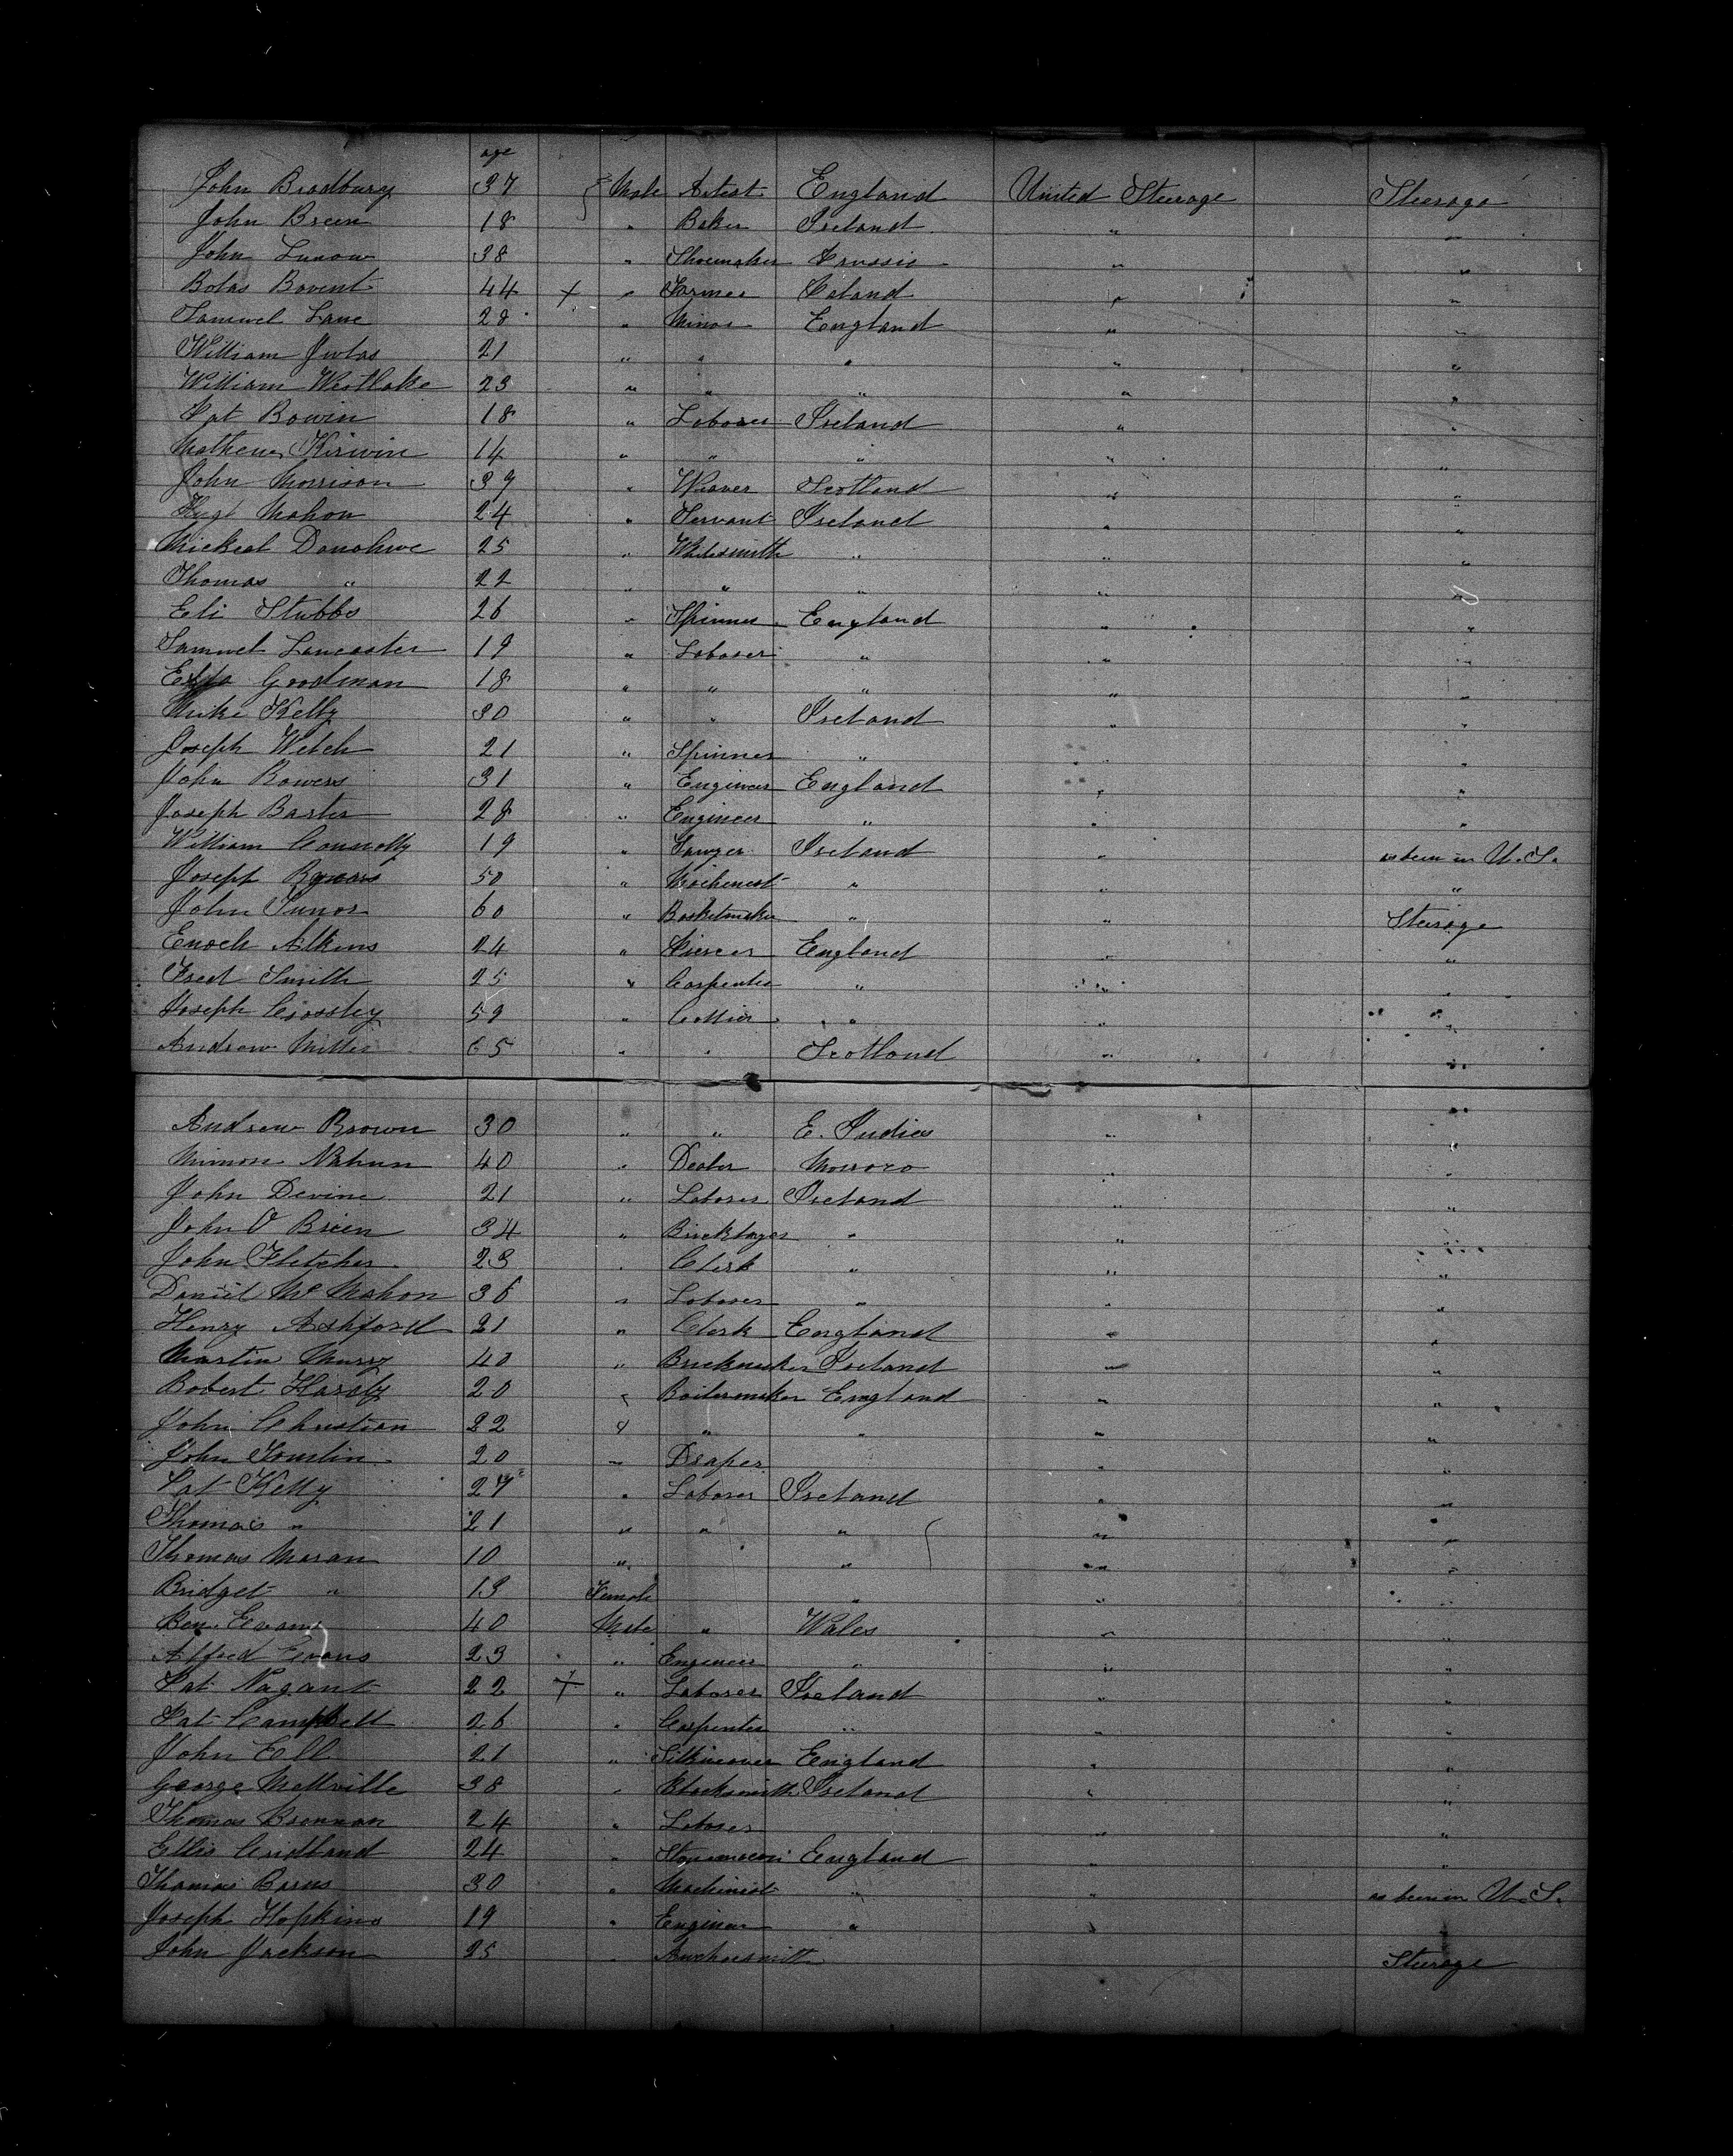 age
John Bradbury 37 Male Artist England United Steerage Steerage
John Breen 18 " Baker Ireland " "
John 38 " Shoemaker Prussia " "
Bolas Bavent 44 + " Farmer Poland " "
Samuel Lane 28 " Minor England " "
William 21 " " " " "
William Westlake 23 " " " " "
Pat Bowin 18 " Laborer Ireland " "
Mathew Kirwin 14 " " " " "
John Morrison 39 " Weaver Scotland " "
Hugh Mahon 24 " Servant Ireland " "
Mickeal Donohue 25 " Whitesmith " " "
Thomas " 22 " " " " "
Eli Stubbs 26 " Spinner England " "
Samuel Lancaster 19 " Laborer " " "
Goodman 18 " " " " "
Mike Kelly 30 " " Ireland " "
Joseph Welch 21 " Spinner " " "
John Bowers 31 " Engineer England " "
Joseph Baster 28 " Engineer " " "
William Connolly 19 " Sawyer Ireland " as been in U.S.
Joseph 50 " Machenest " " "
John 60 " Basketmaker " " Steerage
Enoch Atkins 24 " Piercer England " "
Fred Smith 25 " Carpenter " " "
Joseph Crossley 59 " Collier " " "
Andrew Miller 65 " " Scotland " "
Andrew Brown 30 " " E. Indies " "
Mimon Nahun 40 " Dealer Morroco " "
John Devine 21 " Laborer Ireland " "
John O Brien 34 " Bricklayer " " "
John Fletcher 23 " Clerk " " "
Daniel Mc Mahon 36 " Laborer " " "
Henry Ashford 21 " Clerk England " "
Martin Murry 40 " Brickmaker Ireland " "
Robert Hardy 20 " Boilermaker England " "
John Christian 22 " " " " "
John Tomlin 20 " Draper " "
Pat Kelly 27 " Laborer Ireland " "
Thomas " 21 " " " " "
Thomas Moran 10 " " " "
Bridget " 13 Female " " "
Ben. Evans 40 Male " Wales " "
Alfred Evans 23 " Engineer " " "
Pat Nagant 22 + " Laborer Ireland " "
Pat Campbell 26 " Carpenter " " "
John Ell 21 " Silkweaver England " "
George Mellville 38 " Blacksmith Ireland " "
Thomas Brennan 24 " Laborer " "
Ellis Cridland 24 " Stonemason England " "
Thomas Barns 30 " Machinist " " as been in U.S.
Joseph Hopkins 19 " Engineer " " "
John Jackson 25 " Anchorsmith Steerage